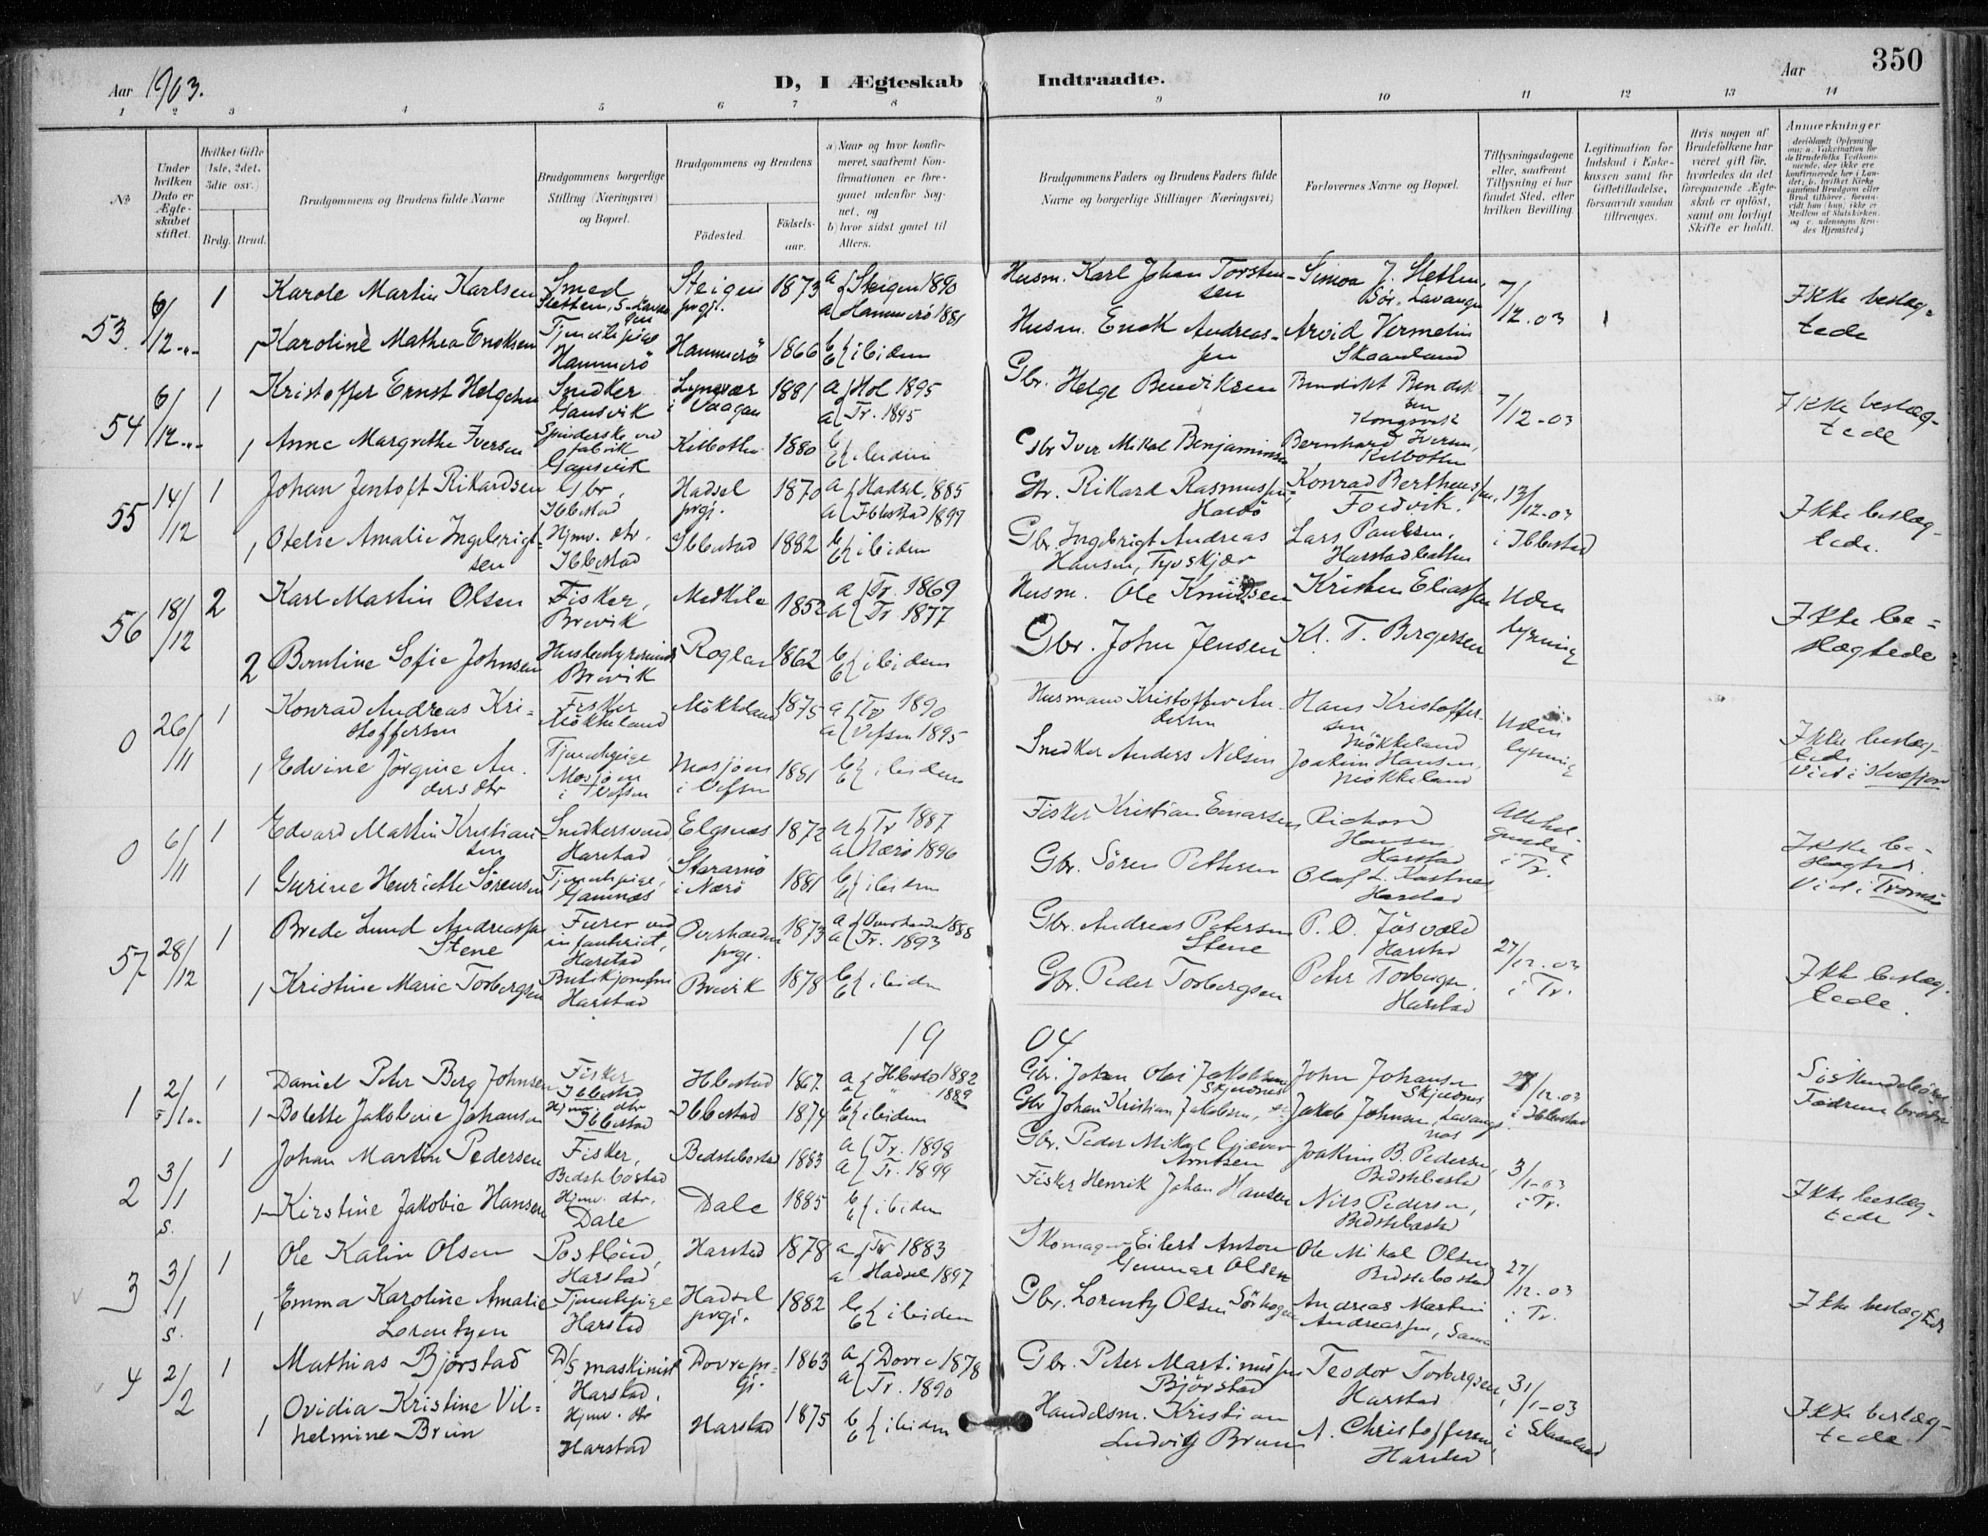 350
Aar 1903.
D, I Ægteskab Indtraadte.
Aar
1 2 3 4 5 6 7 8 9 10 11 12 13 14
No
Under hvilken Dato er Ægteskabet stiftet.
Hvilket Gifte (1ste, 2det, 3die osv.)
Brdg. Brud.
Brudgommens og Brudens fulde Navne
Brudgommens borgerlige Stilling (Næringsvei) og Bopæl.
Brudgommens og Brudens
Födested.
Födsels-aar.
a) Naar og hvor konfirmeret, saafremt Konfirmationen er foregaaet udenfor Sognet, og
b) hvor sidst gaaet til Alters.
Brudgommens Faders og Brudens Faders fulde Navne og borgerlige Stillinger (Næringsvei)
Forlovernes Navne og Bopæl.
Tillysningsdagene eller, saafremt Tillysning ei har fundet Sted, efter hvilken Bevilling.
Legitimation for Indskud i Enkekassen samt for Giftetilladelse, forsaavidt saadan tiltrænges.
Hvis nogen af Brudefolkene har været gift för, hvorledes da det foregaaende Ægteskab er oplöst, samt om lovligt Skifte er holdt.
Anmærkninger
53 6/12 -"- 1 Karole Martin Karlsen Smed Steigen prgj. 1873 a Steigen 1890 a Hammerö 1881 Husm. Karl Johan Torstensen Simon J. Sletten, Lavangen 7/12-03 Ikke beslægtede
1 Karoline Mathea Eriksen Tjenestepige Hammerö Hammerö 1866 b ibidem Husm. Erik Andreassen Arvid Vermelin Skaanland
54 6/12 -"- 1 Kristoffer Ernst Helgesen Snedker Gansvik Lyngvær i Vaagan 1881 a Hol 1895 a Tr. 1895 Gbr. Helge Bendiksen Bendikt Bendiksen Kongsvik 7/12-03 Ikke beslægtede
1 Anne Margrethe Iversen Spinderske ved fabrik Gansvik Kilbotten 1880 b ibidem Gbr. Iver Mikal Benjaminsen Bernhard Iversen, Kilbotten
55 14/12 1 Johan Jentoft Rikardsen Gbr, Ibbestad Hadsel prgj. 1870 a Hadsel 1885 a Ibbestad 1899 Gbr. Rikard Rasmussen, Konrad Bertheussen, Fordvik. 13/12-03 i Ibbestad Ikke beslægtede.
1 Otelie Amalie Ingebrigtsen Hjmv. dtr. Ibbestad Ibbestad 1882 b ibidem Gbr. Ingebrigt Andreas Hansen, Tyvskjær Lars Paulsen, Harstadbotten
56 18/12 2 Karl Martin Olsen Fisker, Brevik Medkila 1852 a Tr. 1869 a Tr 1877 Husm. Ole Knudsen Kristen Eliassen Uden lysning Ikke beslægtede
2 Berntine Sofie Johnsen Husbestyrerinde Brevik Roglan 1862 b ibidem Gbr. John Jensen Kl. T. Bergersen
0 26/11 1 Konrad Andreas Kristoffersen Fisker Mökkeland Mökkeland 1875 a Tr 1890 a Vefsen 1895 Husmand Kristoffer Andersen Hans Kristoffersen Mökkeland Uden lysning Ikke beslægtede Viet i Kvæfjord
1 Edvine Jörgine Andersdtr Tjenestepige Mosjöen i Vefsen Mosjöen i Vefsen 1881 b ibidem Snedker Anders Nilsen Joakim Hansen, Mökkeland
0 6/11 1 Edvard Martin Kristiansen Snedkersvend Harstad Elgsnes 1872 a Tr 1887 a Nærö 1896 Fisker Kristian Einarsen Richard Hansen Harstad i Tr. Ikke beslægted. Viet i Tromsö
1 Gurine Henriette Sörensen Tjenestepige, Gamnæs i Nærö 1881 b ibidem Gbr. Sören Pettersen Olaf L. Harstad
57 28/12 1 Brede Lund Andreassen Stene Furer ved infanteriet, Harstad Overhalden prgj. 1873 a Overhalden 1888 a Tr. 1893 Gbr. Andreas Petersen Stene P. O. Jösvold Harstad 27/12-03 i Tr. Ikke beslægtede.
1 Kristine Marie Torbergsen Butikjomfru Harstad Brevik 1878 b ibidem Gbr. Peder Torbergsen Peter Torbergsen, Harstad
19 04
1 2/1 1 Daniel Peter Berg Johnsen Fisker Ibbestad Ibbestad 1867. a Ibbestad 1882 1889 Gbr. Johan Olai Jakobsen Skjendnes John Johansen Skjelnes 28/12-03 i Ibbestad Söskendebörn
1 Bolette Jakobine Johansen Hjmv. dtr Ibbestad Ibbestad 1874 b ibidem Gbr Johan Kristian Jakobsen, Jakob Johnsen, Lavangsnes
2 3/1 s. 1 Johan Martin Pedersen Fisker, Bedstebostad Bedstebostad 1883 a Tr. 1898 a Tr. 1899 Gbr. Peder Mikal Gjæver Arntsen Joakim B. Pedersen, Bedstebostad 3/1-03 i Tr. Ikke beslægtede
1 Kirstine Jakobie Hansen Hjmv. dtr. Dale Dale 1885 b ibidem Fisker Henrik Johan Hansen Nils Pedersen, Bedstebostad
3 3/1 s. 1 Ole Kalin Olsen Postbud, Harstad Harstad 1878 a Tr 1883 a Hadsel 1897 Skomager Eilert Anton Gunnar Olsen Ole Mikal Olsen Bedstebostad 27/12-03 i Tr. Ikke beslægtede
1 Emma Karoline Amalie Lorentzen Tjenestepige Harstad Hadsel prgj. 1882 b ibidem Gbr. Lorentz Olsen Andreas Martin Andreassen, Sama
4 2/2 1 Mathias Björstad D/S maskinist Harstad, Dovre prgj. 1863 a Dovre 1878 a Tr. 1890 Gbr. Peter Martinussen Björstad Teodor Torbergsen, Harstad 31/1-03 i Skaanland Ikke beslægtede
1 Ovidia Kristine Vilhelmine Brun Hjmv. dtr Harstad Harstad 1875 b ibidem Handelsm. Kristian Ludvig Brun A. Christoffersen, Harstad